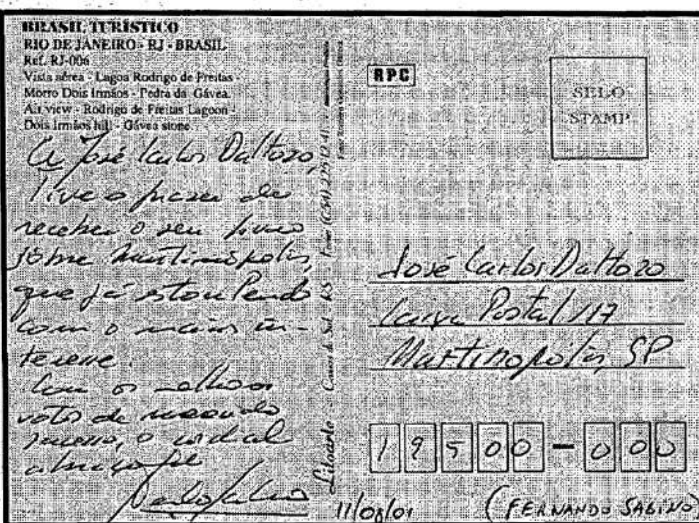 BRASIL TURÍSTICO
RIO DE JANEIRO - RJ - BRASIL
Ref. RJ-006
Vista aérea - Lagoa Rodrigo de Freitas -
Morro Dois Irmãos - Pedra da Gávea.
Air view - Rodrigo de Freitas Lagoon -
Dois Irmãos hill - Gávea stone.
A José Carlos Daltozo,
tive o prazer de
receber o seu livro
sobre Martinópolis,
que já estou lendo
com o maior in-
teresse.
Com os melhores
votos de merecido
sucesso, o cordial
abraço de
Litoarte - Caxias do Sul - RS -
RPC
SELO
STAMP
José Carlos Daltozo
Caixa Postal 117
Martinópolis, SP
19500-000
11/08/01 (FERNANDO SABINO)